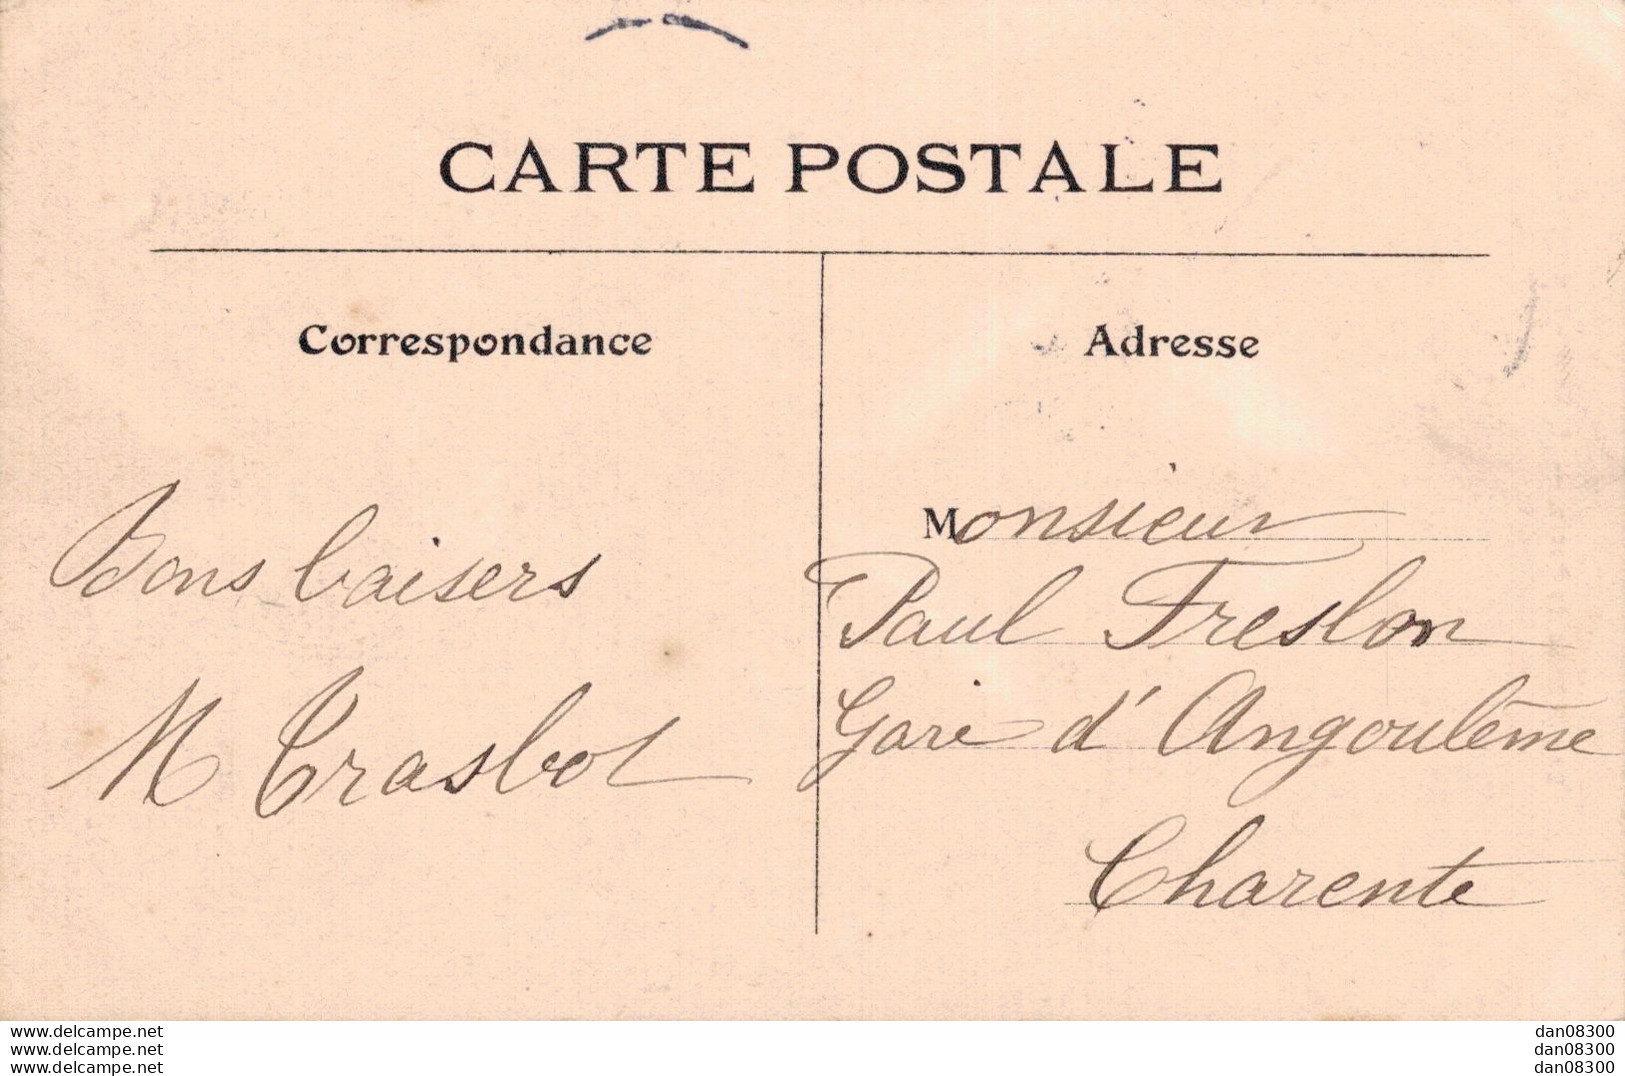 CARTE POSTALE
Correspondance
Bons baisers
M Crasbot
Adresse
Monsieur
Paul Freslon
Gare d'Angoulême
Charente
www.delcampe.net
www.delcampe.net
www.delcampe.net
dan08300
dan08300
dan08300